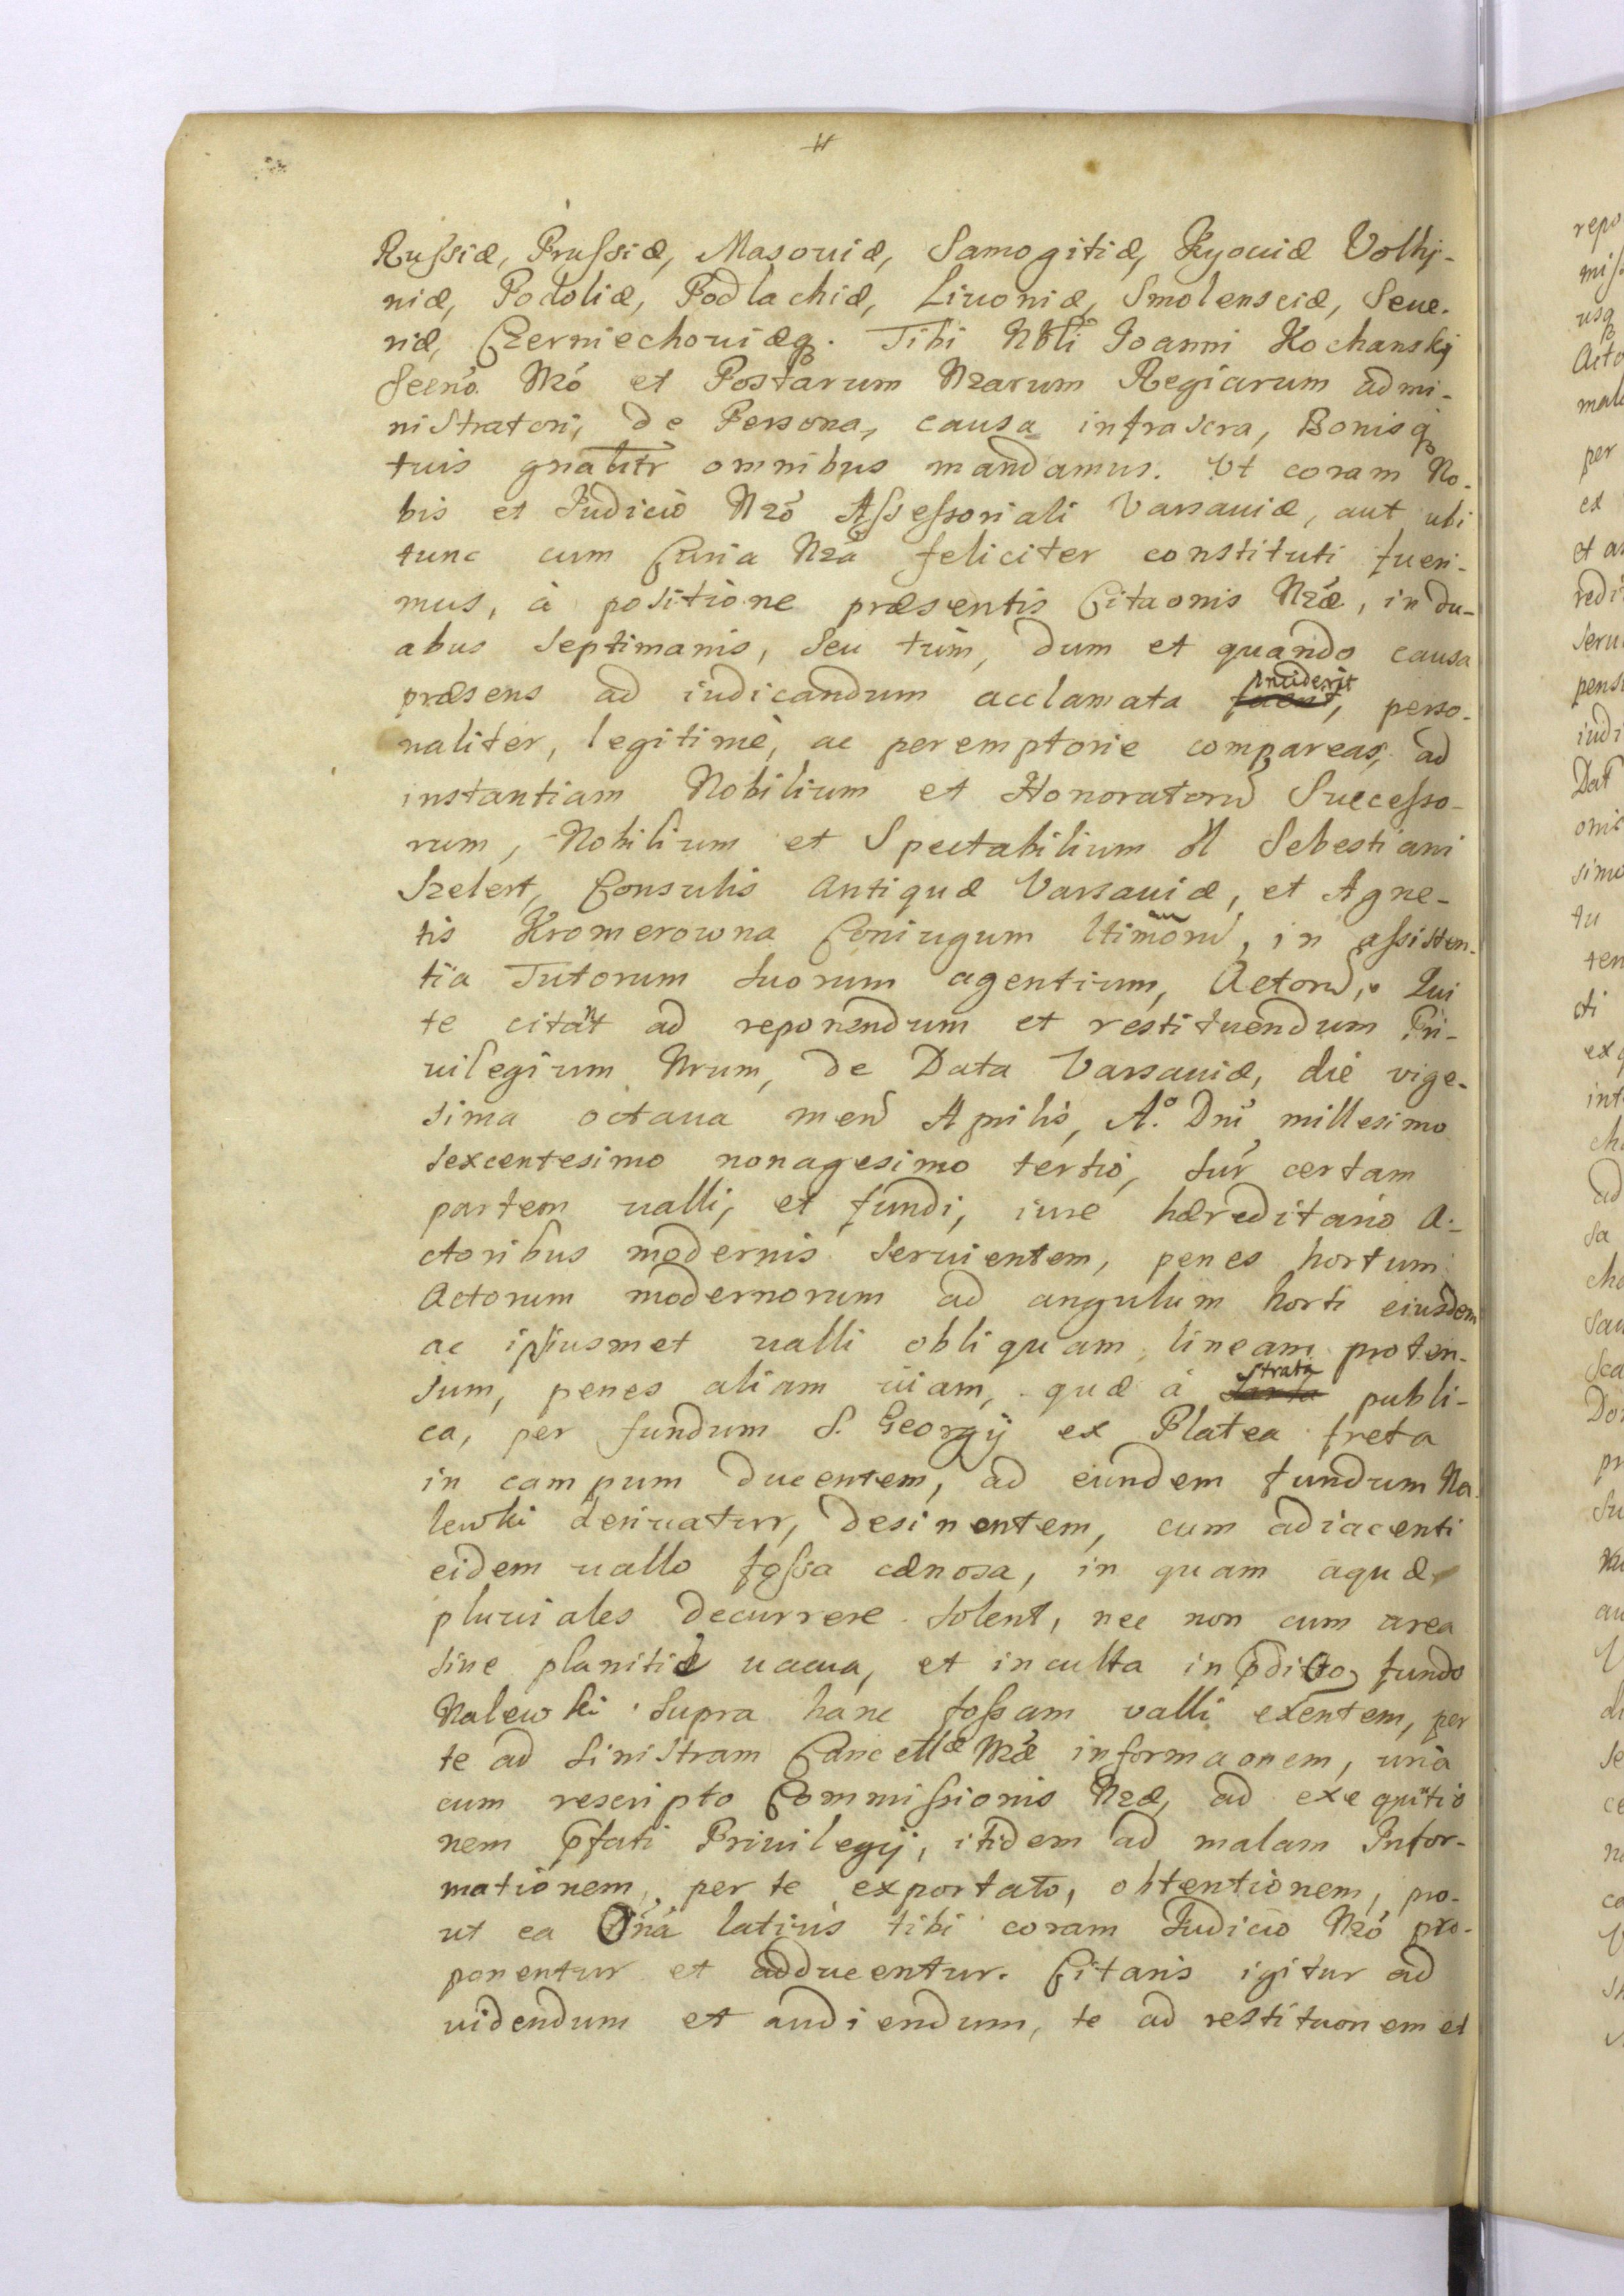 Russiæ, Prussiæ, Masouiæ, Samogitiæ, Kyouiæ Volhy-
niæ, Podoliæ, Podlachiæ, Liuoniæ, Smolensciæ, Seue-
riæ, Czerniechouiæq. Tibi Nbli Joanni Kochansky
Secrio Nro et Postarum Nrarum Regiarum admi-
nistratori, de Persona, causa infrascra, Bonisq
tuis gnaliter omnibus mandamus. Vt coram No-
bis et Judicio Nro Assessoriali Varsauiæ, aut ubi
tunc cum Curia Nra feliciter constituti fueri-
mus, à positione præsentis Citaonis Nræ, in du-
abus septimanis, seu tum, dum et quando causa
præsens ad iudicandum acclamata inciderit, perso-
naliter, legitimè, ac peremptorie compareas, ad
instantiam Nobilium et Honoratorum Successo-
rum, Nobilium et Spectabilium ol Sebestiani
Szelert, Consulis Antiquæ Varsauiæ, et Agne-
tis Kromerowna Coniugum ltimorum, in assisten-
tia Tutorum suorum agentium, Actorum. Qui
te citant ad reponendum et restituendum Pri-
uilegium Nrum, de Data Varsauiæ, die vige-
sima octaua mens Aprilis, Ao. Dni millesimo
sexcentesimo nonagesimo tertio, sur certam
partem ualli, et fundi, iure hæreditario A-
ctoribus modernis seruientem, penes hortum
Actorum modernorum ad angulum horti eiusdem
ac ipsiusmet ualli obliquam lineam proten-
sum, penes aliam uiam, quæ à strata publi-
ca, per fundum S. Georgij ex Platea freta
in campum ducentem, ad eundem fundum Na-
lewki deriuatur, desinentem, cum adiacenti
eidem uallo fossa cænosa, in quam aquæ
pluuiales decurrere solent, nec non cum area
siue planitie uacua, et inculta in pdicto fundo
Nalewki supra hanc fossam valli exentem, per
te ad sinistram Cancellæ Nræ informaonem, una
cum rescripto Commissionis Nræ, ad exequutio
nem pfati Priuilegij, itidem ad malam Infor-
mationem per te exportato, obtentionem, pro-
ut ea Oia latius tibi coram Judicio Nro pro-
ponentur et adducentur. Citaris igitur ad
uidendum et audiendum, te ad restituonem et